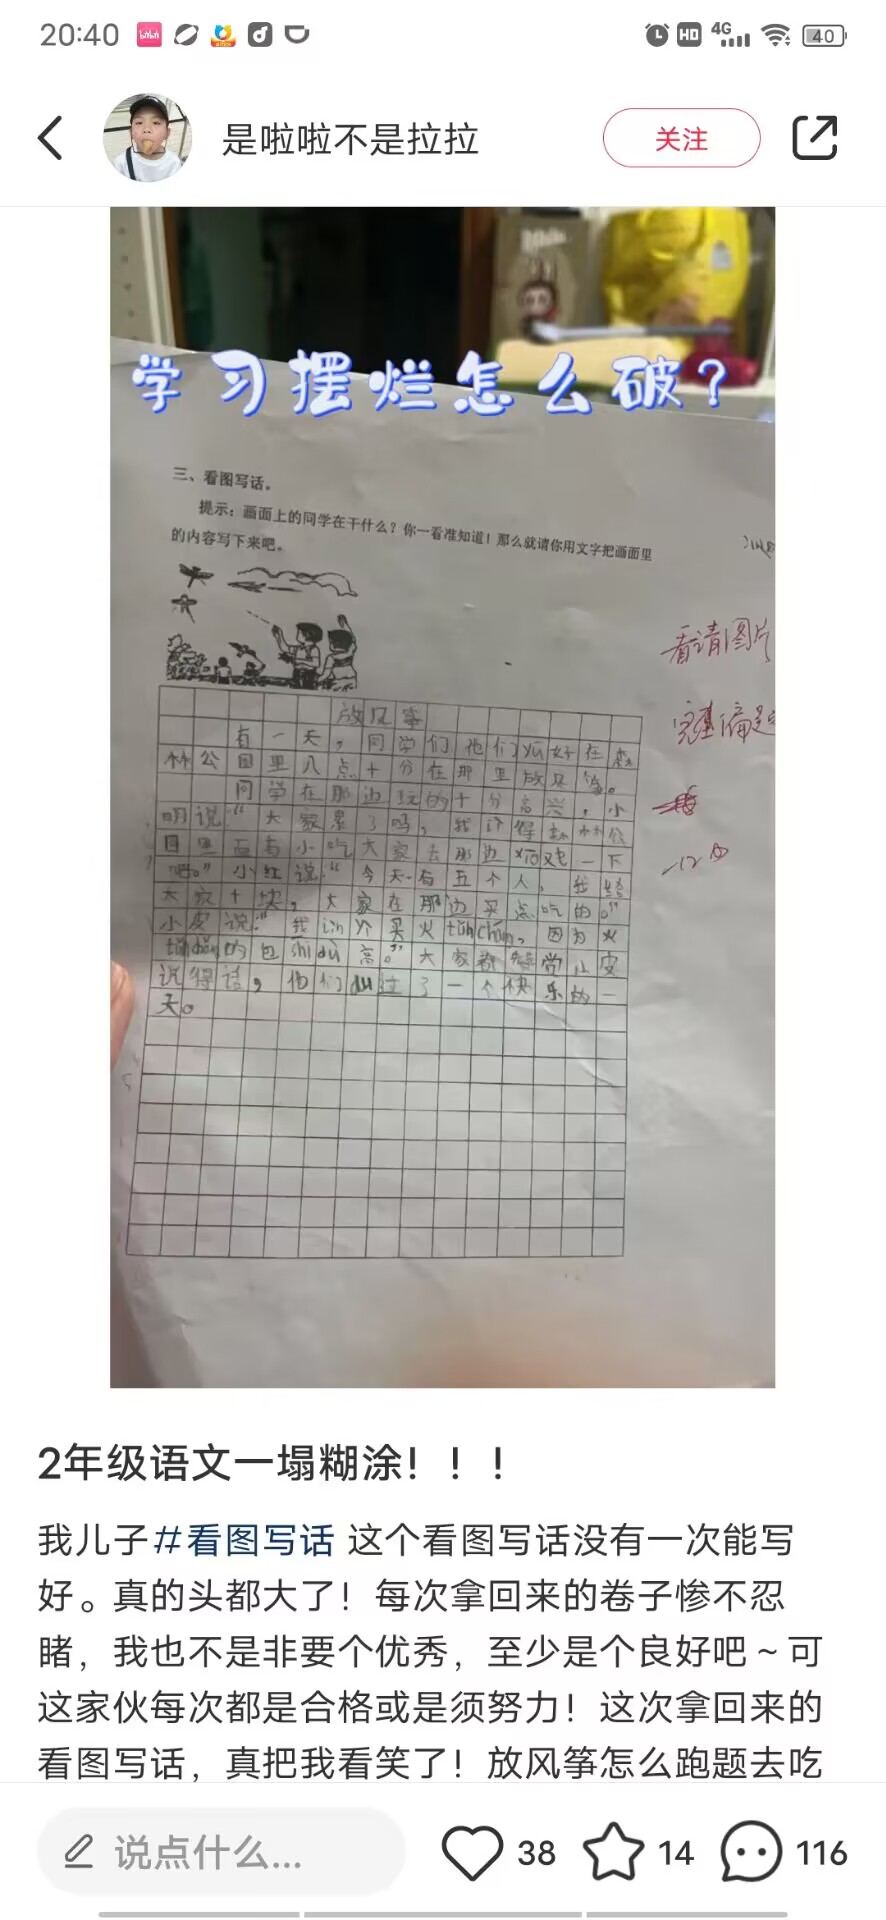 20:40
HD 4G 40
是啦啦不是拉拉
关注
学习摆烂怎么破?
三、看图写话。
提示:画面上的同学在干什么?你一看准知道!那么就请你用文字把画面里
的内容写下来吧。
看请图片
完整偏题
-12分
放风筝
有一天,同学们他们约好在森
林公园里八点十分在那里放风筝。
同学在那边玩的十分高兴,小
明说:“大家累了吗,我记得森林公
园里面有小吃大家去那边吃一下
吧。”小红说:“今天有五个人,我给
大家十块,大家在那边买点吃的。”
小皮说:“我lìn外买火tuǐcháng,因为火
tuǐcháng的包shí dù高。”大家都觉小皮
说得话,他们du过了一个快乐的一
天。
2年级语文一塌糊涂!!!
我儿子#看图写话 这个看图写话没有一次能写
好。真的头都大了!每次拿回来的卷子惨不忍
睹,我也不是非要个优秀,至少是个良好吧~可
这家伙每次都是合格或是须努力!这次拿回来的
看图写话,真把我看笑了!放风筝怎么跑题去吃
说点什么...
38
14
116